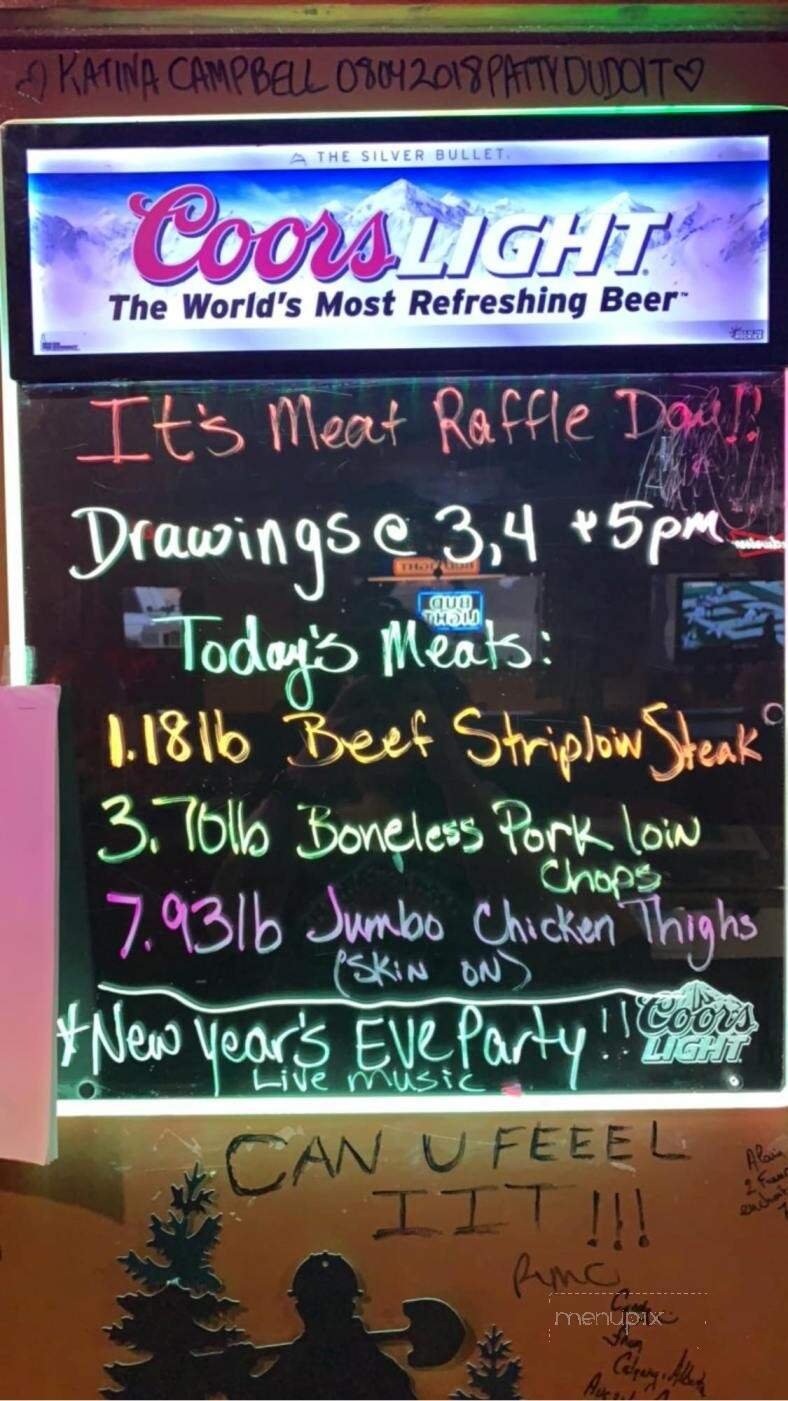 KATINA CAMPBELL 08042018 PATTY DUDOIT♡
THE SILVER BULLET.
Coors LIGHT
The World's Most Refreshing Beer™
It's Meat Raffle Day!!
Drawings @ 3,4 + 5pm
BUD
LIGHT
Today's Meats:
1.18lb Beef Striplow Steak
3.70lb Boneless Pork loin
Chops
7.93lb Jumbo Chicken Thighs
(SKIN ON)
*New Year's EVE Party!!
Live music
Coors
LIGHT
CAN U FEEEL
IIT!!!
RMC
menupix
from
Calgary, Alberta